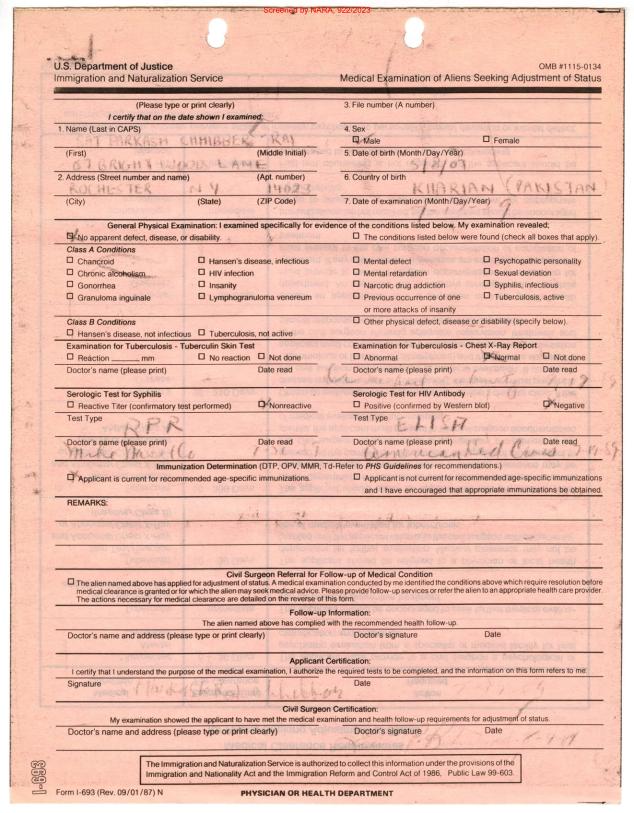 Screened by NARA, 9/22/2023
U.S. Department of Justice
Immigration and Naturalization Service
OMB #1115-0134
Medical Examination of Aliens Seeking Adjustment of Status
(Please type or print clearly)
I certify that on the date shown I examined:
3. File number (A number)
1. Name (Last in CAPS)
SAT PARKASH CHHIBBER (RAI
(First) (Middle Initial)
4. Sex
Male Female
5. Date of birth (Month/Day/Year)
67 BRIGHT WOOD LANE
2. Address (Street number and name) (Apt. number)
6. Country of birth
ROCHESTER N Y 14623
KHARIAN (PAKISTAN)
(City) (State) (ZIP Code)
7. Date of examination (Month/Day/Year)
General Physical Examination: I examined specifically for evidence of the conditions listed below. My examination revealed;
No apparent defect, disease, or disability. The conditions listed below were found (check all boxes that apply).
Class A Conditions
Chancroid Hansen's disease, infectious Mental defect Psychopathic personality
Chronic alcoholism HIV infection Mental retardation Sexual deviation
Gonorrhea Insanity Narcotic drug addiction Syphilis, infectious
Granuloma inguinale Lymphogranuloma venereum Previous occurrence of one or more attacks of insanity Tuberculosis, active
Class B Conditions
Other physical defect, disease or disability (specify below).
Hansen's disease, not infectious Tuberculosis, not active
Examination for Tuberculosis - Tuberculin Skin Test
Reaction ______ mm No reaction Not done
Doctor's name (please print) Date read
Examination for Tuberculosis - Chest X-Ray Report
Abnormal Normal Not done
Doctor's name (please print) Date read
Serologic Test for Syphilis
Reactive Titer (confirmatory test performed) Nonreactive
Test Type
RPR
Doctor's name (please print) Date read
Serologic Test for HIV Antibody
Positive (confirmed by Western blot) Negative
Test Type
ELISA
Doctor's name (please print) Date read
American Red Cross
Immunization Determination (DTP, OPV, MMR, Td-Refer to PHS Guidelines for recommendations.)
Applicant is current for recommended age-specific immunizations.
Applicant is not current for recommended age-specific immunizations
and I have encouraged that appropriate immunizations be obtained.
REMARKS:
Civil Surgeon Referral for Follow-up of Medical Condition
The alien named above has applied for adjustment of status. A medical examination conducted by me identified the conditions above which require resolution before
medical clearance is granted or for which the alien may seek medical advice. Please provide follow-up services or refer the alien to an appropriate health care provider.
The actions necessary for medical clearance are detailed on the reverse of this form.
Follow-up Information:
The alien named above has complied with the recommended health follow-up.
Doctor's name and address (please type or print clearly) Doctor's signature Date
Applicant Certification:
I certify that I understand the purpose of the medical examination, I authorize the required tests to be completed, and the information on this form refers to me.
Signature Date
Civil Surgeon Certification:
My examination showed the applicant to have met the medical examination and health follow-up requirements for adjustment of status.
Doctor's name and address (please type or print clearly) Doctor's signature Date
The Immigration and Naturalization Service is authorized to collect this information under the provisions of the
Immigration and Nationality Act and the Immigration Reform and Control Act of 1986, Public Law 99-603.
I-693
Form I-693 (Rev. 09/01/87) N
PHYSICIAN OR HEALTH DEPARTMENT